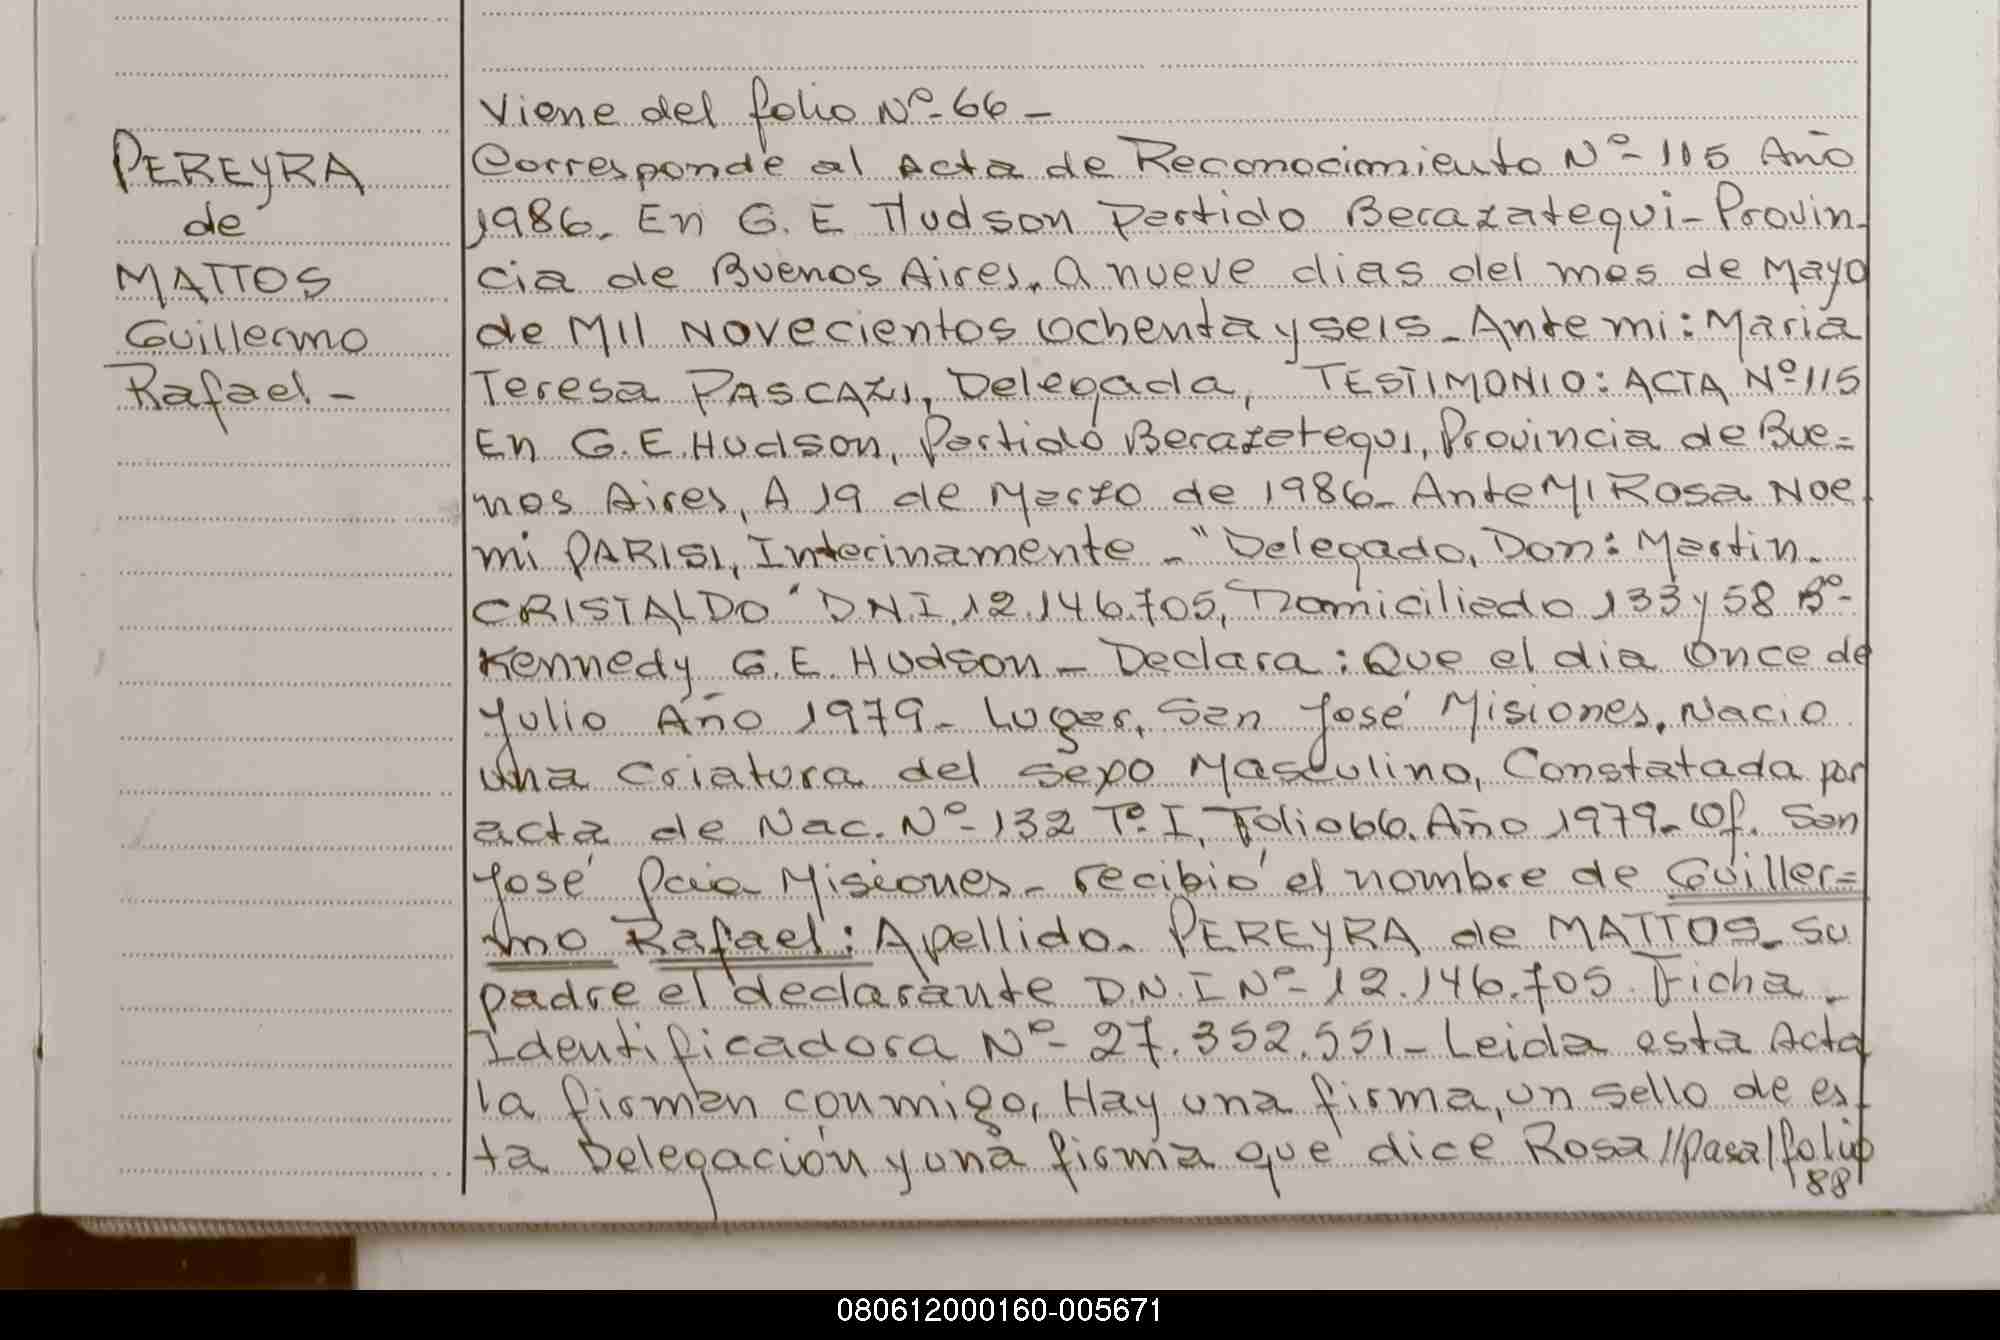 PEREYRA
de
MATTOS
Guillermo
Rafael -
Viene del folio Nº- 66 -
Corresponde al Acta de Reconocimiento Nº- 115 Año
1986. En G. E Hudson Partido Berazategui - Provin-
cia de Buenos Aires, a nueve dias del mes de Mayo
de Mil Novecientos Ochenta y seis - Ante mi : Maria
Teresa PASCAZI, Delegada, TESTIMONIO: ACTA Nº 115
En G. E. Hudson, Partido Berazategui, Provincia de Bue=
nos Aires, A 19 de Marzo de 1986- Ante Mi Rosa Noe
mi PARISI, Interinamente - " Delegado, Don: Martin
CRISTALDO " D.N.I 12.146.705, Domiciliado 133 y 58 Bº-
Kennedy G. E. Hudson - Declara : Que el dia Once de
Julio Año 1979- Lugar, San José Misiones, Nacio
una criatura del sexo Masculino, Constatada por
acta de Nac. Nº- 132 Tº I, Folio 66. Año 1979- Of. San
José Pcia Misiones - recibió el nombre de Guiller=
mo Rafael : Apellido. PEREYRA de MATTOS - Su
padre el declarante D.N.I Nº- 12.146.705. Ficha -
Identificadora Nº- 27.352.551 - Leida esta Acta
la firman conmigo, Hay una firma, un sello de es
ta Delegación y una firma que dice Rosa //pasa/folio
88
080612000160-005671